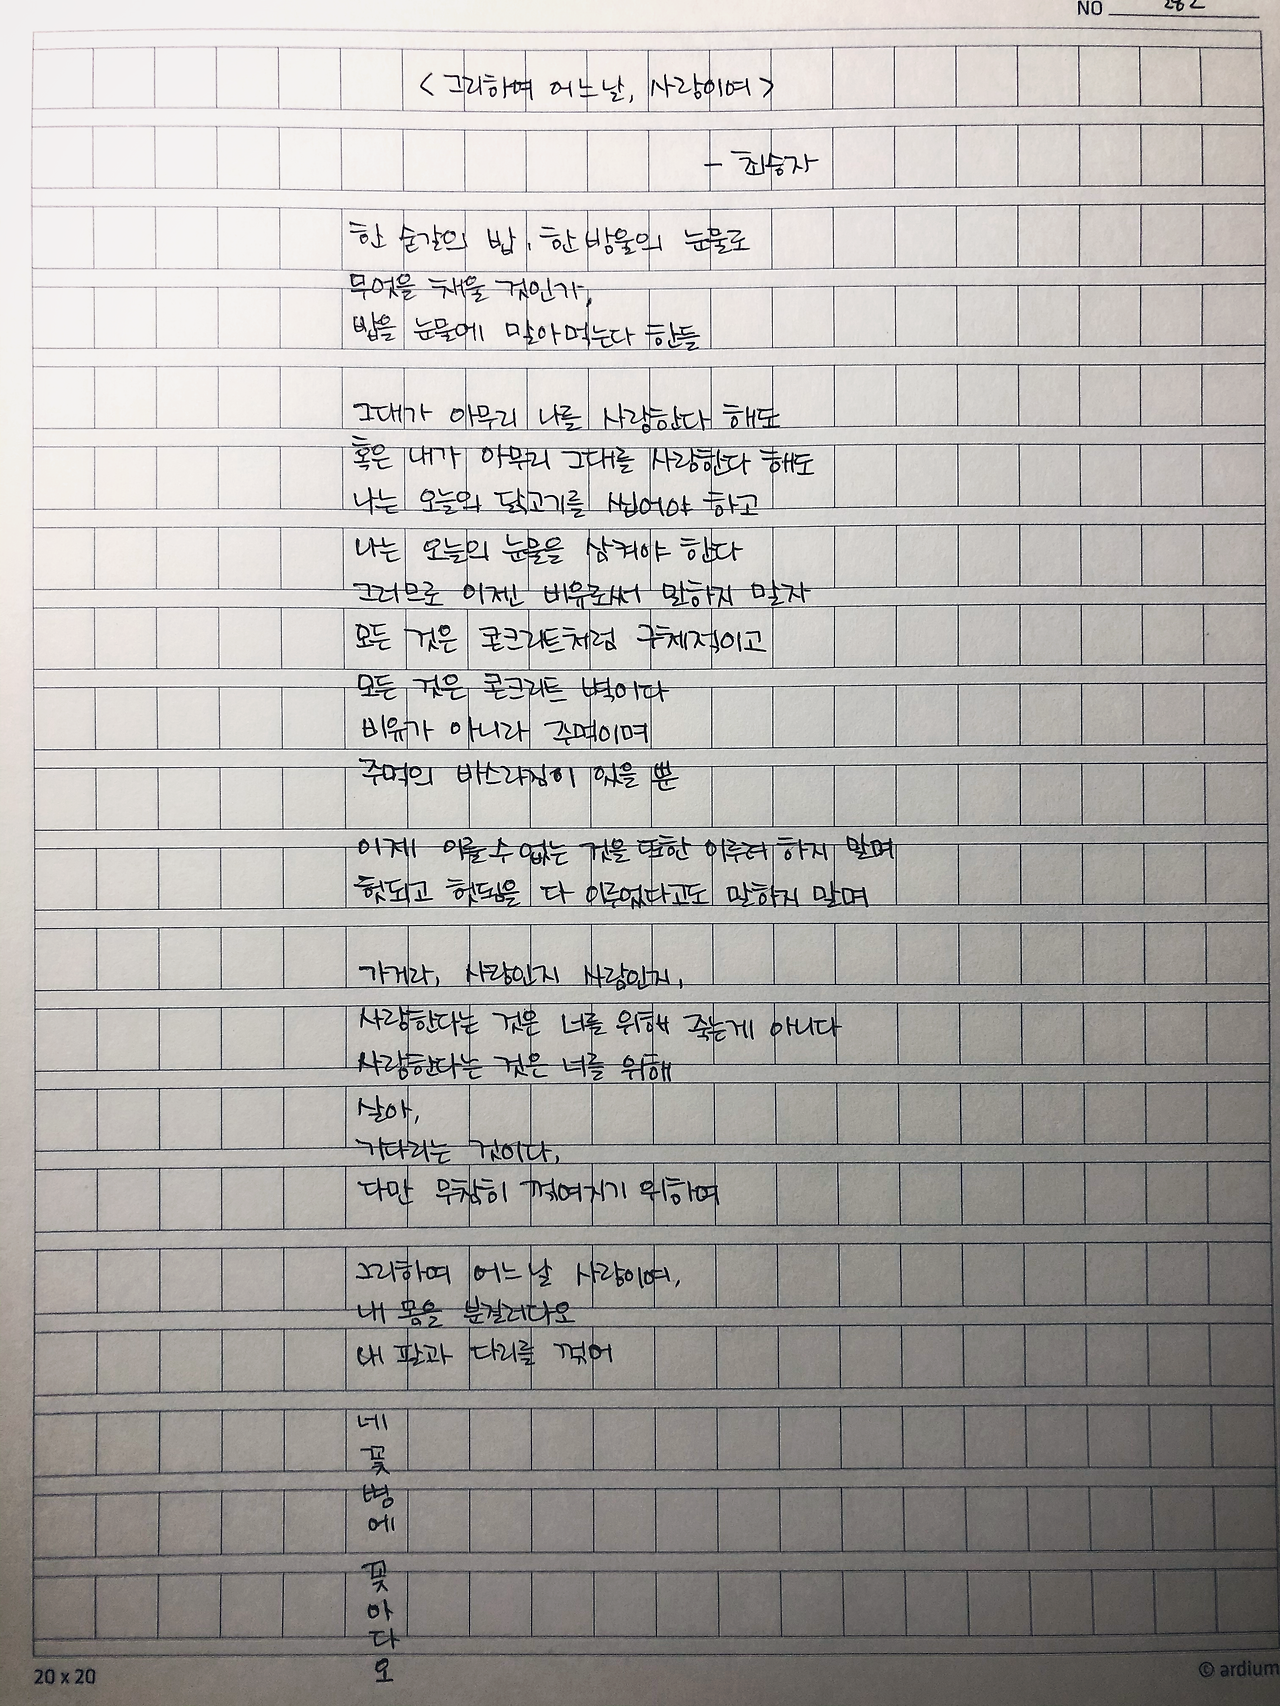 NO 282
<그리하여 어느날, 사랑이여>
- 최승자
한 숟갈의 밥, 한 방울의 눈물로
무엇을 채울 것인가,
밥을 눈물에 말아먹는다 한들
그대가 아무리 나를 사랑한다 해도
혹은 내가 아무리 그대를 사랑한다 해도
나는 오늘의 닭고기를 씹어야 하고
나는 오늘의 눈물을 삼켜야 한다
그러므로 이젠 비유로써 말하지 말자
모든 것은 콘크리트처럼 구체적이고
모든 것은 콘크리트 벽이다
비유가 아니라 주먹이며
주먹의 바스라짐이 있을 뿐
이제 이룰 수 없는 것을 또한 이루려 하지 말며
헛되고 헛됨을 다 이루었다고도 말하지 말며
가거라, 사랑인지 사람인지,
사랑한다는 것은 너를 위해 죽는게 아니다
사랑한다는 것은 너를 위해
살아,
기다리는 것이다,
다만 무참히 꺾여지기 위하여
그리하여 어느날 사랑이여,
내 몸을 분질러다오
내 팔과 다리를 꺾어
네
꽃
병
에
꽂
아
다
오
20 x 20
© ardium